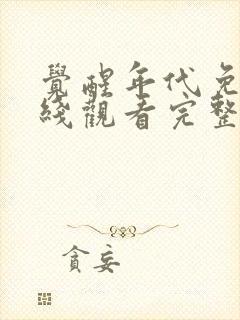 覺醒年代免
綫觀看完整
貪妄